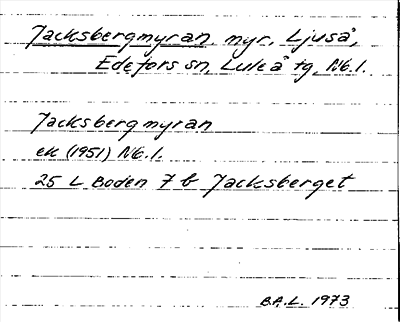 Jacksbergmyran, myr, Ljuså,
Edefors sn, Luleå tg, Nb.l.
Jacksbergmyran
ek (1951) Nb.l.
25 L Boden 7 b Jacksberget
B.A.L. 1973